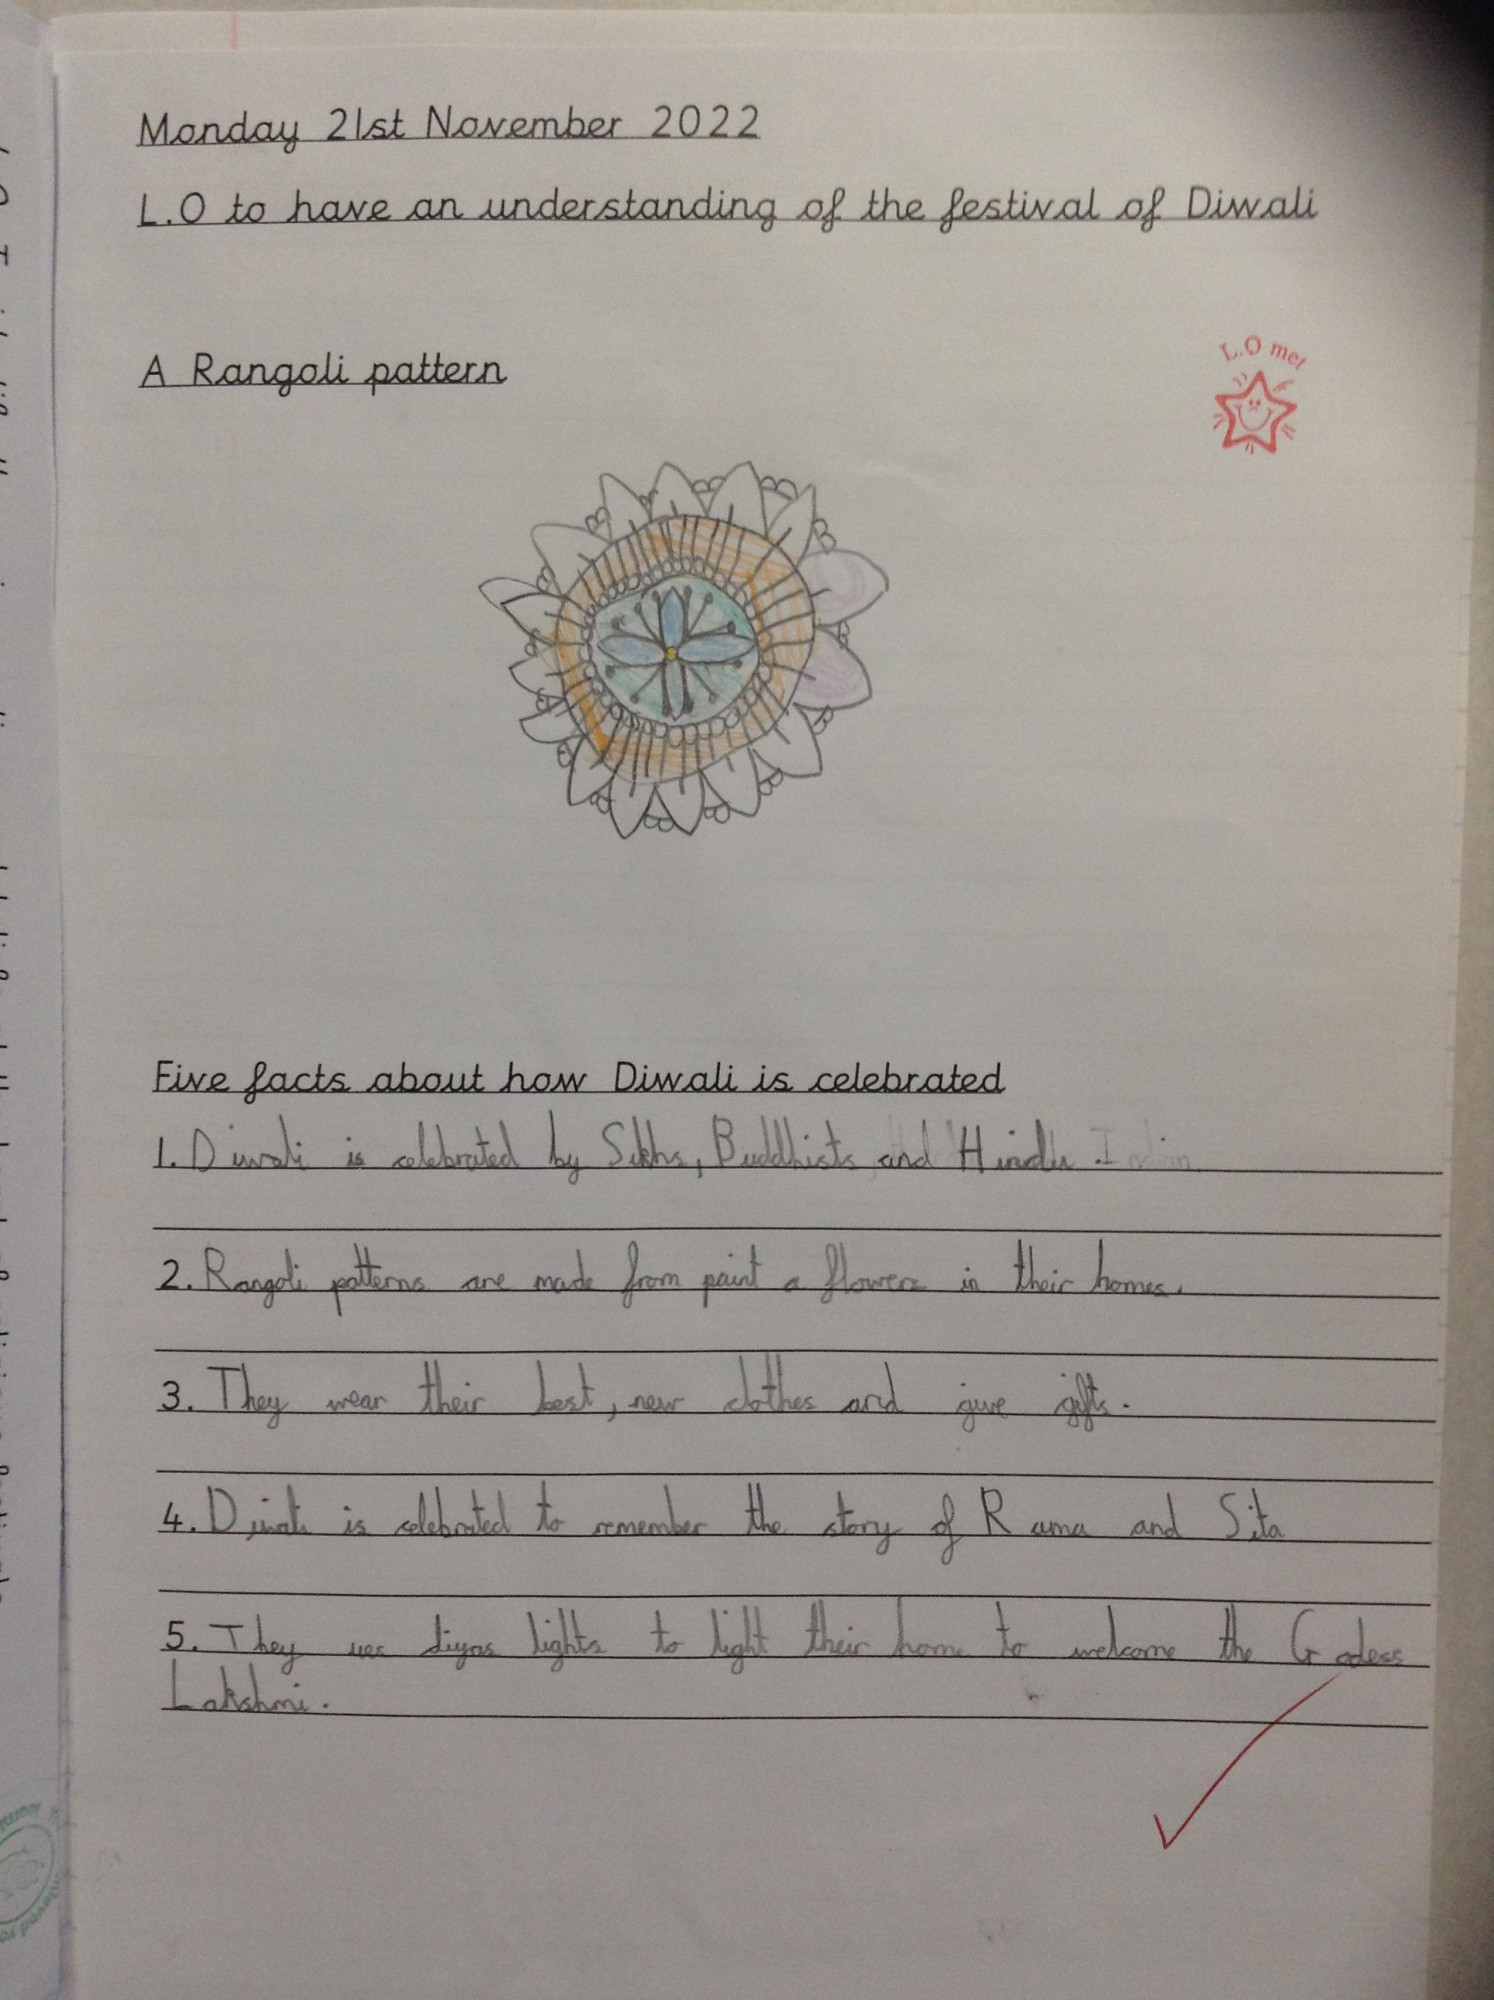 Monday 21st November 2022
L.O to have an understanding of the festival of Diwali
A Rangoli pattern
L.O met
Five facts about how Diwali is celebrated
1. Diwali is celebrated by Sikhs, Buddhists and Hindu.
2. Rangoli patterns are made from paint a flowers in their homes.
3. They wear their best, new clothes and give gifts.
4. Diwali is celebrated to remember the story of Rama and Sita
5. They ues diyas lights to light their home to welcome the Godess
Lakshmi.